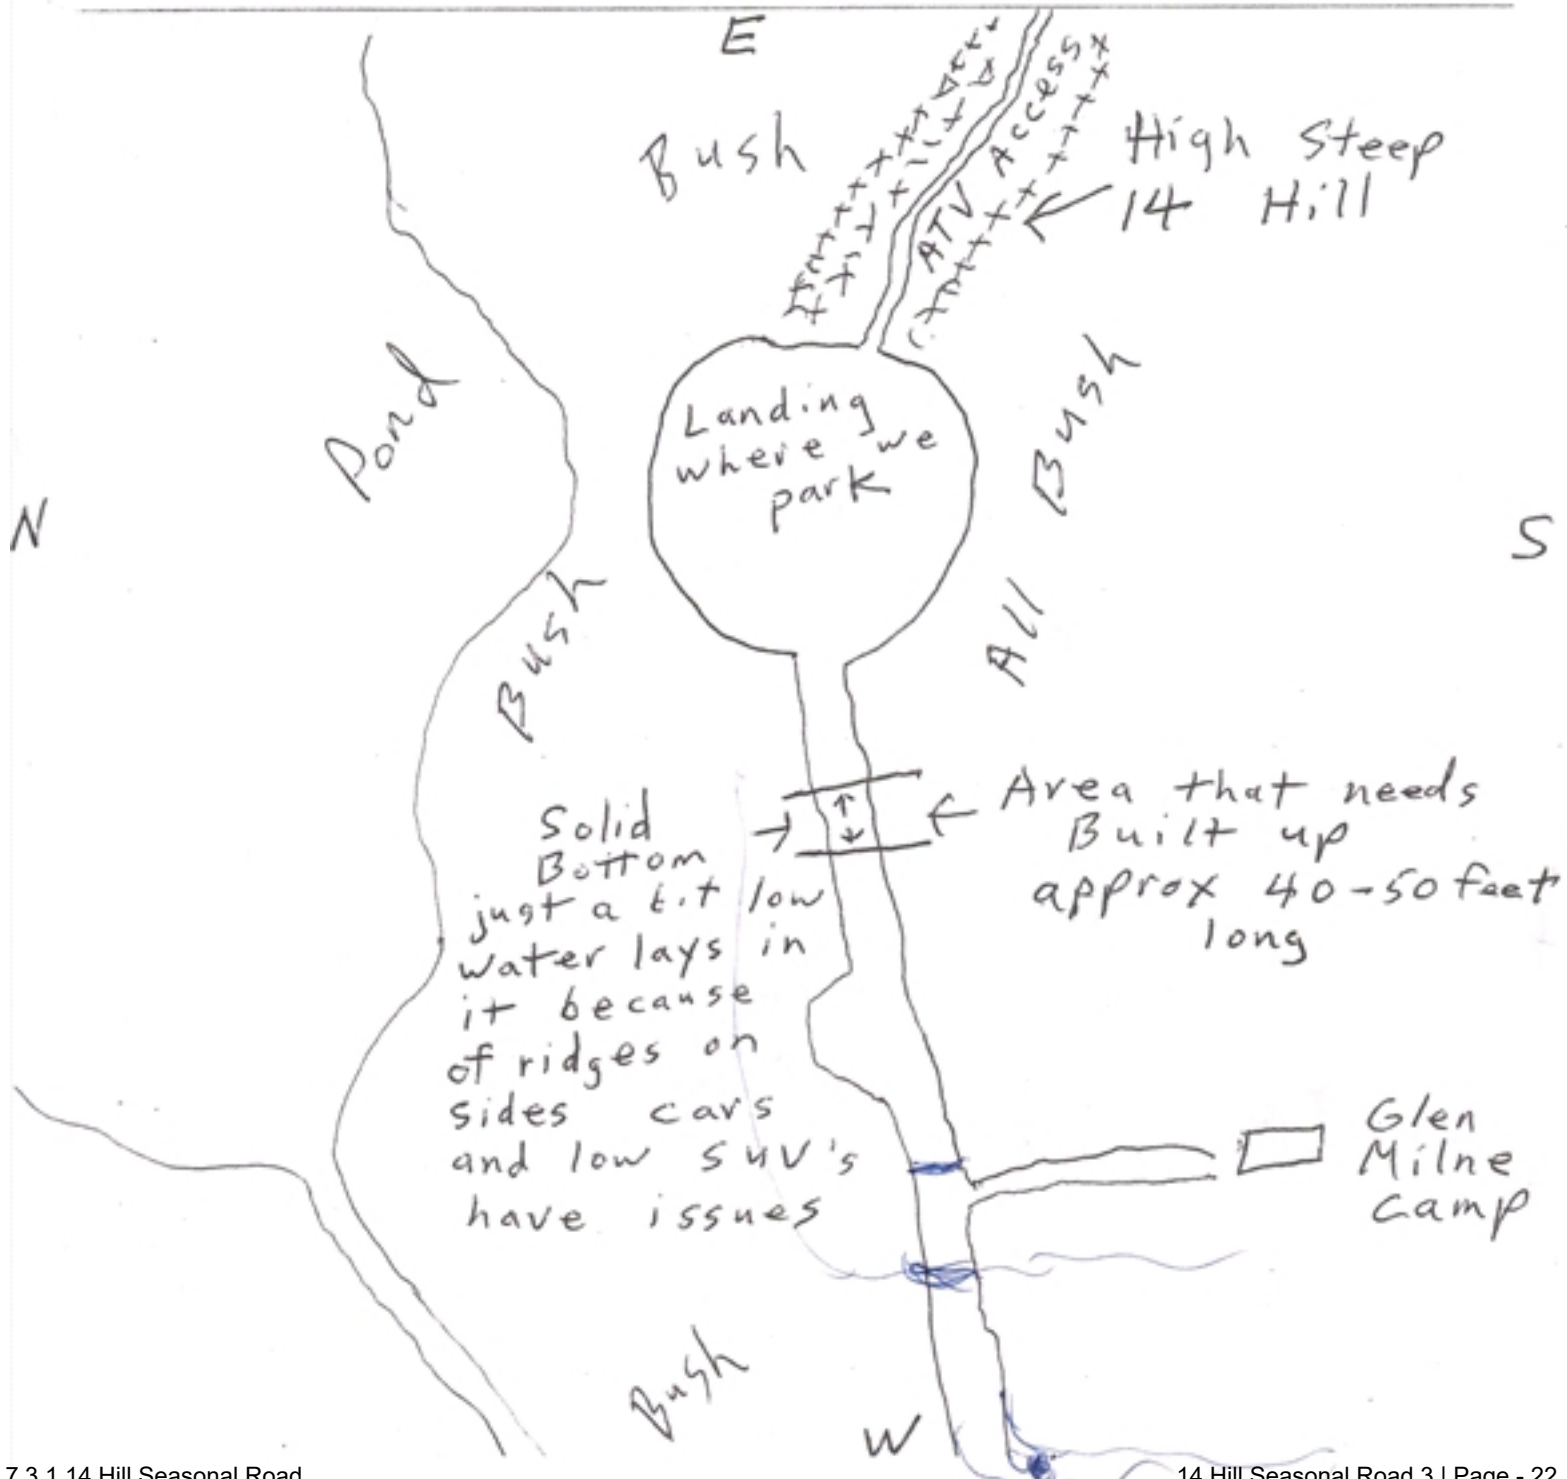 E
Bush
ATV Access
High Steep
14 Hill
Pond
Landing
where we
park
All Bush
N
S
Bush
Solid
Bottom
just a bit low
water lays in
it because
of ridges on
sides cars
and low SUV's
have issues
Area that needs
Built up
approx 40-50 feet
long
Glen
Milne
Camp
Bush
W
7.3.1 14 Hill Seasonal Road
14 Hill Seasonal Road 3 | Page - 22